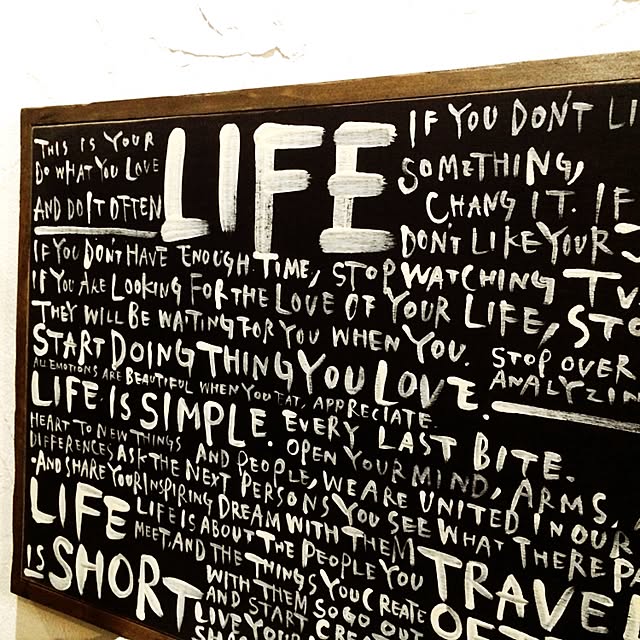 THIS IS YOUR
DO WHAT YOU LOVE
AND DO IT OFTEN
LIFE
IF YOU DON'T LI
SOMETHING,
CHANG IT. IF
DON'T LIKE YOUR J
IF YOU DON'T HAVE ENOUGH TIME, STOP WATCHING TV
IF YOU ARE LOOKING FOR THE LOVE OF YOUR LIFE, STO
THEY WILL BE WATING FOR YOU WHEN YOU.
START DOING THING YOU LOVE.
STOP OVER
ANALYZIN
ALL EMOTIONS ARE BEAUTIFUL WHEN YOU EAT, APPRECIATE.
LIFE IS SIMPLE. EVERY LAST BITE.
HEART TO NEW THINGS AND PEOPLE, OPEN YOUR MIND, ARMS,
DIFFERENCES ASK THE NEXT PERSONS WE ARE UNITED IN OUR
AND SHARE YOUR INSPIRING DREAM WITH THEM YOU SEE WHAT THERE PA
LIFE
IS SHORT
LIFE IS ABOUT THE PEOPLE YOU
MEET, AND THE THINGS YOU CREATE
WITH THEM SO GO OUT
AND START CREA
LIVE YOUR
TRAVE
OFT